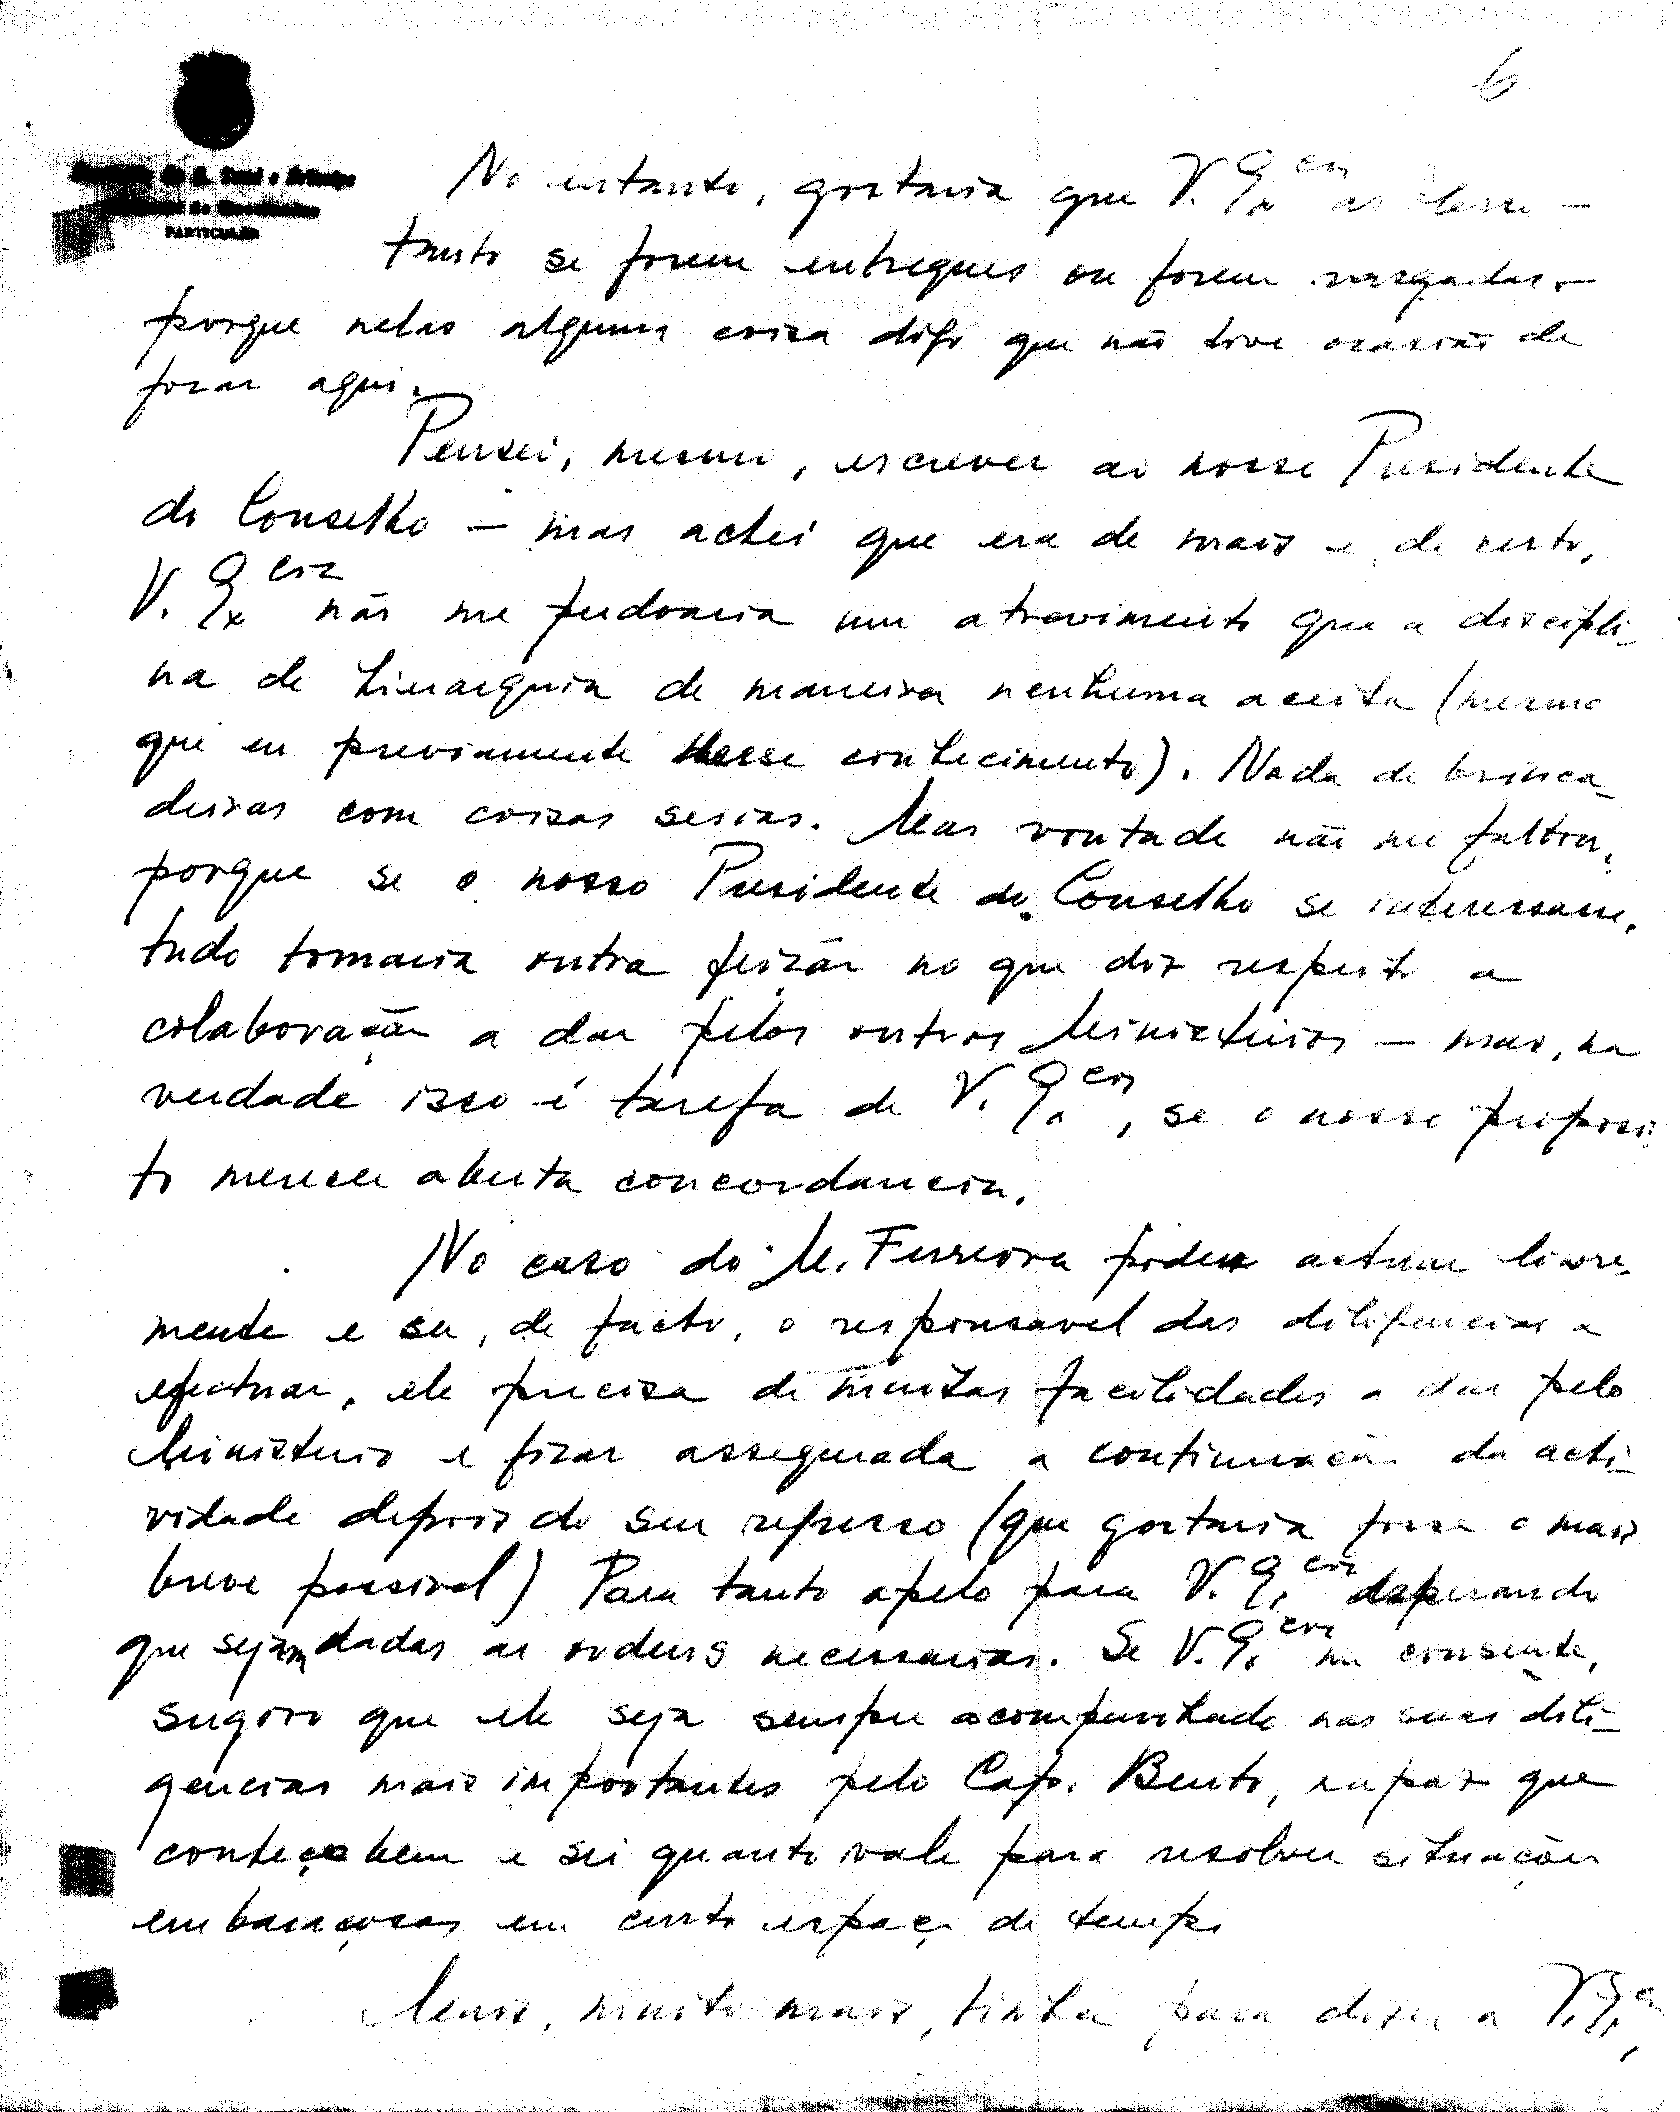 6
PARTICULAR
No entanto, gostaria que V. Exª cia as lesse -
tanto se forem entregues ou forem rasgadas -
porque nelas alguma coisa digo que não tive ocasião de
focar aqui.
Pensei, mesmo, escrever ao nosso Presidente
do Conselho - mas achei que era de mais e, de certo,
V. Ex cia não me perdoaria um atrevimento que a discipli-
na de hierarquia de maneira nenhuma aceita (mesmo
que eu previamente desse conhecimento). Nada de brinca-
deiras com coisas serias. Mas vontade não me faltou,
porque se o nosso Presidente do Conselho se interessasse,
tudo tomaria outra feição no que diz respeito a
colaboração a dar pelos outros Ministerios - mas, na
verdade isso é tarefa de V. Ex.cia, se o nosso proposi
to merecer aberta concordancia.
No caso do M. Ferreira poder actuar livre-
mente e ser, de facto, o responsavel das diligencias a
efectuar, ele precisa de muitas facilidades a dar pelo
Ministerio e ficar assegurada a continuação da acti-
vidade depois do seu regresso (que gostaria fosse o mais
breve possivel) Para tanto apelo para V. Ex.cia esperando
que sejam dadas as ordens necessarias. Se V. Ex.cia me consente,
sugiro que ele seja sempre acompanhado nas suas dili-
gencias mais importantes pelo Cap. Bento, rapaz que
conheço bem e sei quanto vale para resolver situações
embaraçosas em curto espaço de tempo
Mais, muito mais, tinha para dizer a V. Ex.cia,